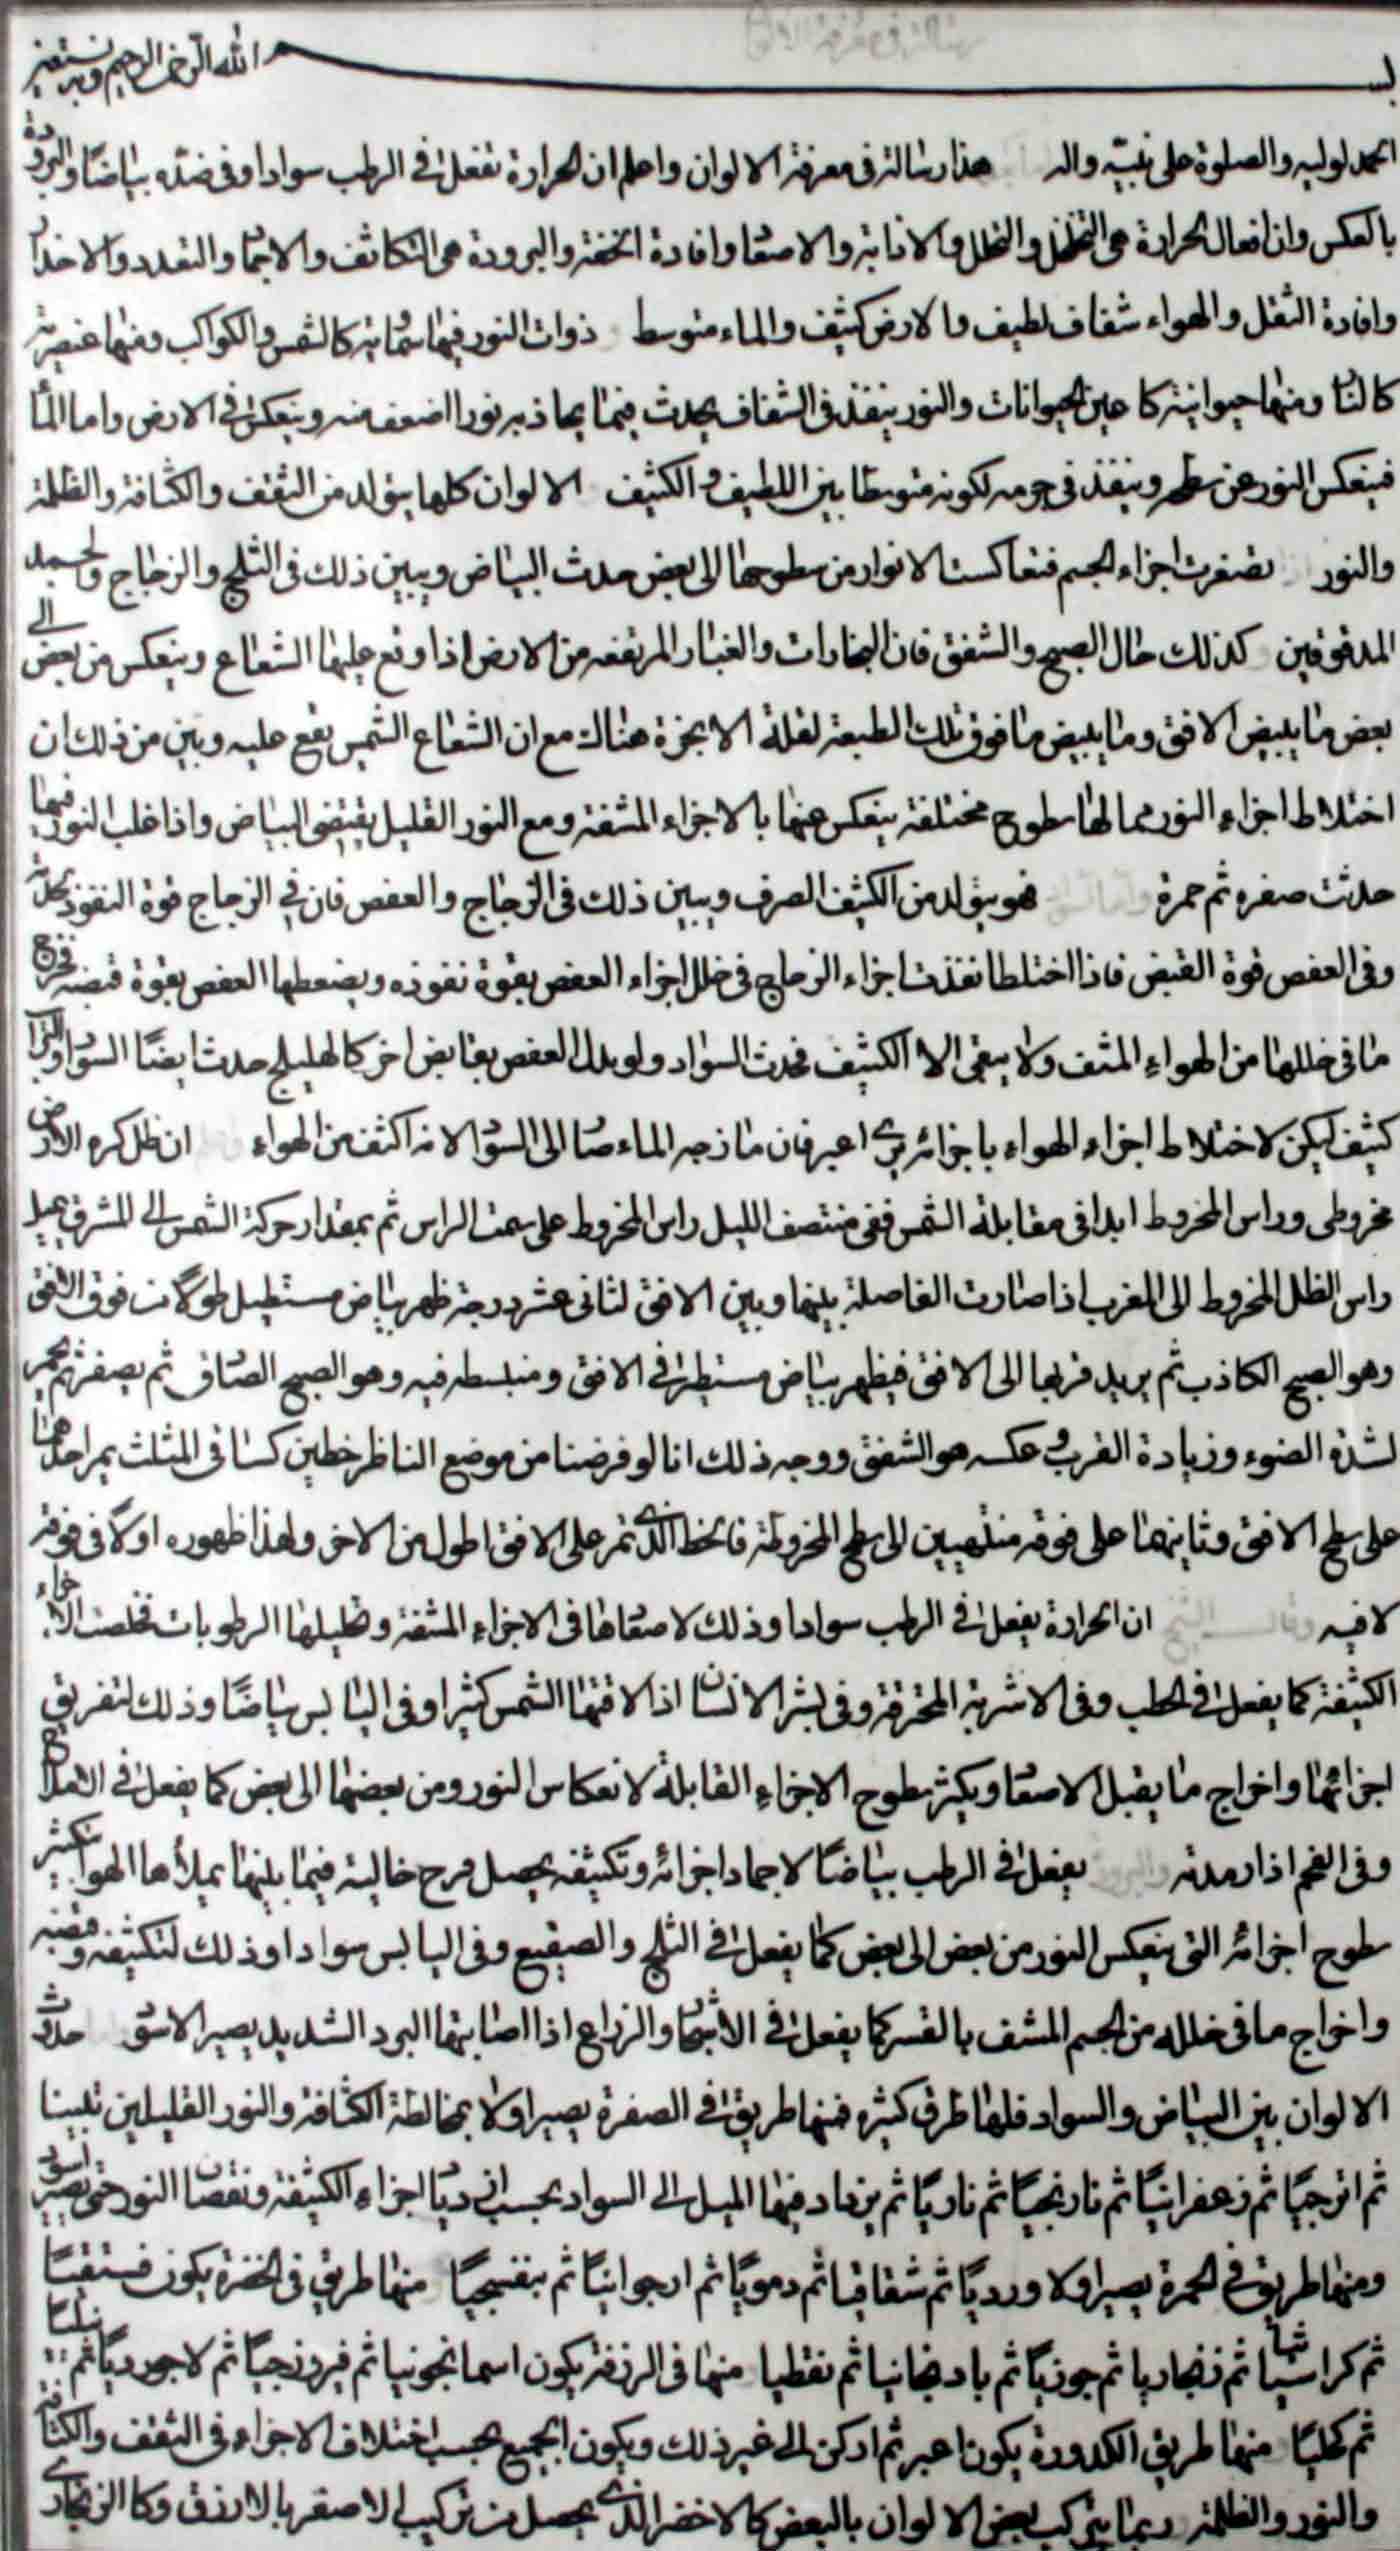 بسم الله الرحمن الرحيم وبه نستعين
الحمد لوليه والصلوة على نبيه واله هذا رسالة فى معرفة الالوان واعلم ان الحرارة تفعل فى الرطب سوادا وفى ضده بياضا والبرودة
بالعكس وان افعال الحرارة هى التخلخل والتحلل والاذابة والاصعاد وافادة الخفة والبرودة هى التكاثف والاجماد والتعدد والاخدار
وافادة الثقل والهواء شفاف لطيف والارض كثيف والماء متوسط ذوات النور فمنها سمائية كالشمس والكواكب ومنها عنصرية
كالنار ومنها حيوانية كاعين الحيوانات والنور ينفذ فى الشفاف يحدث فيما يحاذيه نورا اضعف منه وينعكس فى الارض واما الماء
فينعكس النور عن سطحه وينفذ فى جرمه لكونه متوسطا بين اللطيف والكثيف الالوان كلها يتولد من الثقف والكثافة والظلمة
والنور تصغرت اجزاء الجسم فتعاكست الانوار من سطوحها الى بعض حدث البياض ويبين ذلك فى الثلج والزجاج والجمد
المدقوقين كذلك حال الصبح والشفق فان البخارات والغبار المرتفعه من الارض اذا وقع عليها الشعاع وينعكس من بعض الى
بعض ما يبيض الافق وما يبيض ما فوق تلك الطبقة لقلة الابخرة هناك مع ان الشعاع الشمس يقع عليه وبين من ذلك ان
اختلاط اجزاء النور مما لها سطوح مختلفة ينعكس عنها بالاجزاء المشفة ومع النور القليل يقتضى البياض واذا غلب النور فيها
حدثت صفره ثم حمرة فهو يتولد من الكثيف الصرف ويبين ذلك فى الزجاج والعفص فان فى الزجاج قوة النفوذ
وفى العفص قوة القبض فاذا اختلطا نفذت اجزاء الزجاج فى خلل اجزاء العفص بقوة نفوذه ويضغطها العفص بقوة قبضه فخرج
ما فى خللها من الهواء المشف ولا يبقى الا الكثيف فحدث السواد ولو بدل العفص بقابض اخر كالهليلج حدث ايضا السواد والتراب
كثيف لكن لاختلاط اجزاء الهواء باجزائه يرى اغبر فان مازجه الماء صار الى السواد لانه اكثف من الهواء ان ظل كره الارض
مخروطى وراس المخروط ابدا فى مقابلة الشمس ففى منتصف الليل راس المخروط على سمت الراس ثم بمقدار حركة الشمس الى المشرق يميل
راس الظل المخروط الى المغرب اذا صارت الفاصلة بينها وبين الافق ثمانى عشر درجة ظهر بياض مستطيل طولا من فوق الافق
وهو الصبح الكاذب ثم يزيد قربها الى الافق فيظهر بياض مستطير فى الافق ومنبسطه فيه وهو الصبح الصادق ثم يصفر ثم يحمر
لشدة الضوء وزيادة القرب وعكسه هو الشفق ووجه ذلك انا لو فرضنا من موضع الناظر خطين كساقى المثلث يمر احدهما
على سطح الافق وثانيهما على فوقه منتهيين الى سطح المخروط فالخط الذى تمر على الافق اطول من الاخر ولهذا ظهوره اولا فى فوقه
لا فيه وقال الشيخ ان الحرارة يفعل فى الرطب سوادا وذلك لاصعادها فى الاجزاء المشفة وتحليلها الرطوبات فخلصت الاجزاء
الكثيفة كما يفعل فى الحطب وفى الاشربة المحترقة وفى بشر الانسان اذا لاقتها الشمس كثيرا وفى اليابس بياضا وذلك لتفريق
اجزائها واخراج ما يقبل الاصعاد ويكثر سطوح الاجزاء القابلة لانعكاس النور ومن بعضها الى بعض كما يفعل فى
وفى الفحم اذا رمدته والبرودة يفعل فى الرطب بياضا لاجماد اجزائه وتكثيفه يحصل فرج خالية فيما بينها يملأها الهواء يكثر
سطوح اجزائه التى ينعكس النور من بعض الى بعض كما يفعل فى الثلج والصقيع وفى اليابس سوادا وذلك لتكثيفه وقبضه
واخراج ما فى خلله من الجسم المشف بالقسر كما يفعل فى الاشجار والزراع اذا اصابتها البرد الشديد يصير الاسود حدوث
الالوان بين البياض والسواد فلها طرق كثيره فمنها طريق فى الصفرة يصير اولا بمخالطة الكثافة والنور القليلين تبنيا
ثم اترجيا ثم زعفرانيا ثم نارنجيا ثم ناريا ثم يزداد فيها الميل الى السواد بحسب ازدياد اجزاء الكثيفة ونقصان النور حتى يصير اسود
ومنها طريق فى الحمرة يصير اولا ورديا ثم شقايقيا ثم دمويا ثم ارجوانيا ثم بنفسجيا منها طريق فى الخضرة يكون فستقيا
ثم كراثيا ثم زنجاريا ثم جوزيا ثم باذنجانيا ثم نفطيا منها فى الزرقة يكون اسمانجونيا ثم فيروزجيا ثم لاجورديا ثم نيليا
ثم كحليا منها طريق الكدورة يكون اغبر ثم ادكن الى غير ذلك ويكون الجميع بحسب اختلاف الاجزاء فى الثقف والكثافة
والنور والظلمة ربما يتركب بعض الالوان بالبعض كالاخضر الذى يحصل من تركيب الاصفر بالازرق وكالزنجارى